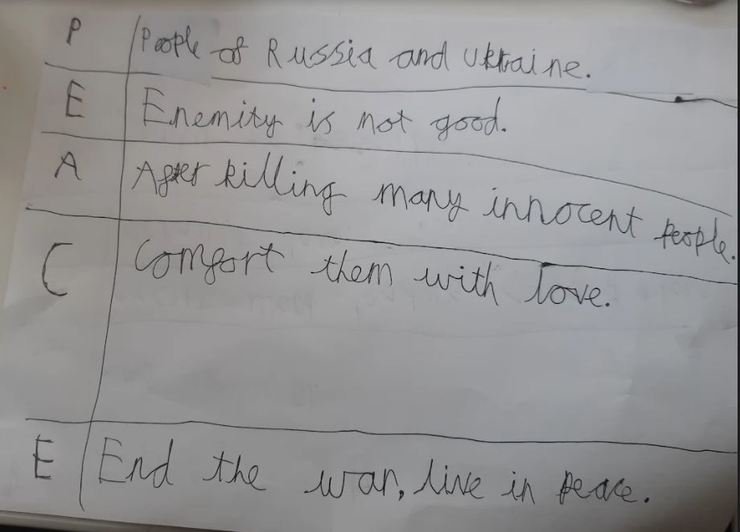 P People of Russia and Ukraine.
E Enemity is not good.
A After killing many innocent people.
C Comfort them with love.
E End the war, live in peace.